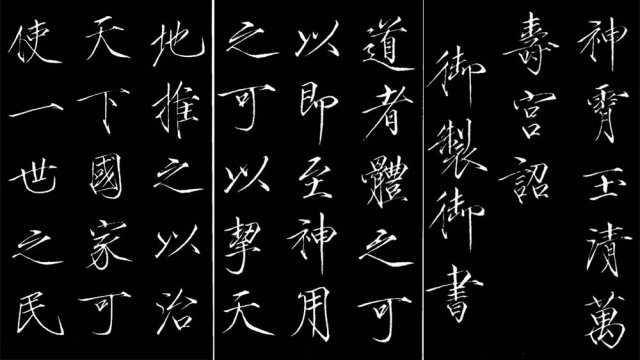 神霄玉清萬
壽宮詔
御製御書
道者體之可
以即至神用
之可以挈天
地推之以治
天下國家可
使一世之民